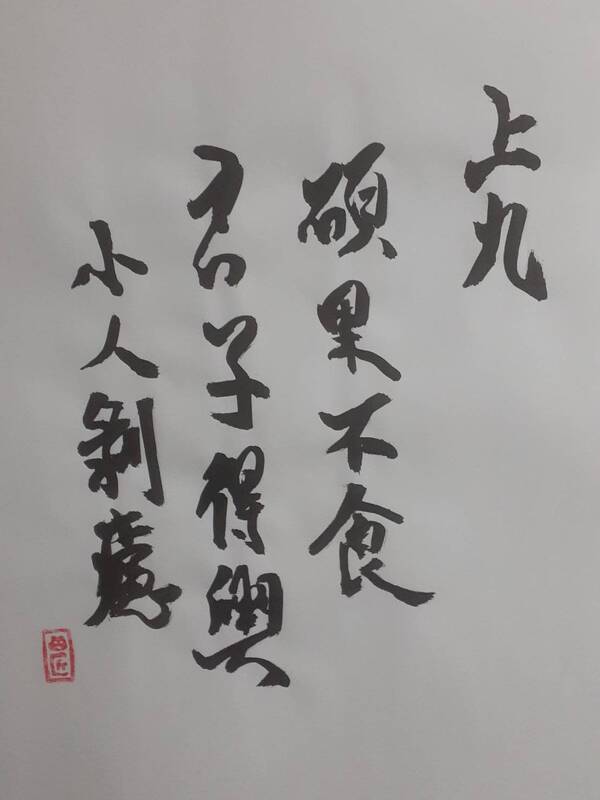 上九
碩果不食
君子得輿
小人剝廬